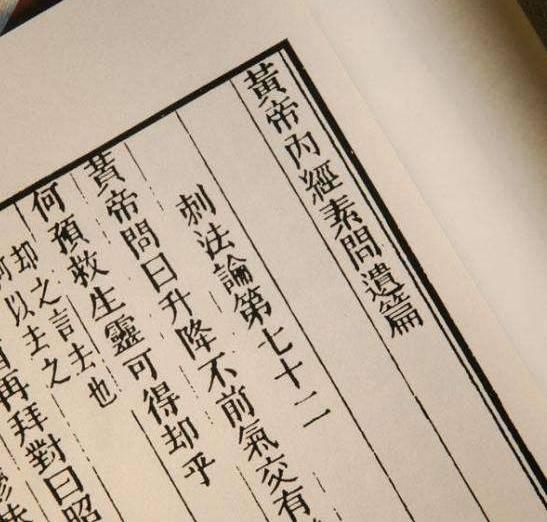 黃帝內經素問遺篇
刺法論第七十二
黃帝問曰升降不前氣交有
何預救生靈可得却乎
却之言去也
以去之
再拜對曰昭